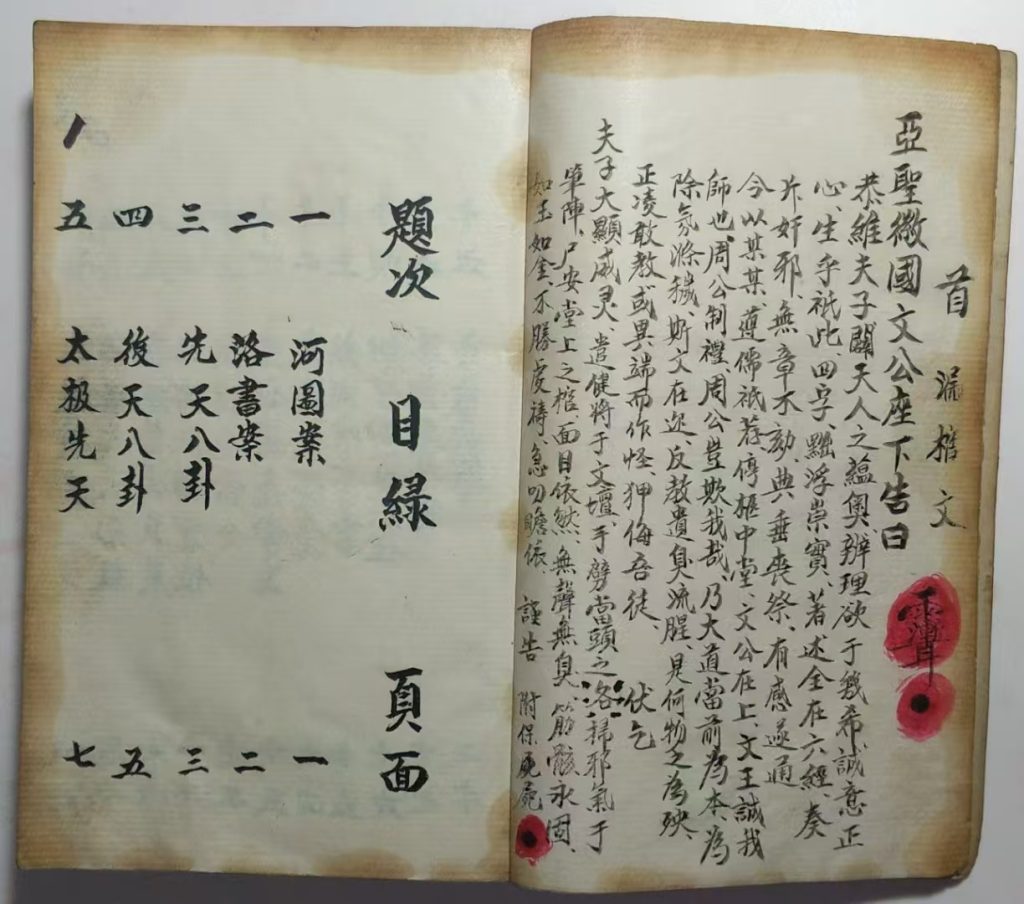 首 棺文
亞聖徽國文公座下告曰
恭維夫子闢天人之蘊奧、辦理欲于幾希、誠意正
心、生乎祇此、四字、黜浮崇實、著述全在六經、奏
斥奸邪、無章不劾、典垂喪祭、有感遂通
今以某某、遵儒祇荐停柩中堂、文公在上、文王誠我
師也、周公制禮、周公豈欺我哉、乃大道當前為本、為
除氛滌穢、斯文在迩、反教遺臭流腥、是何物之為殃
正凌敢教或異端而作怪、狎侮吾徒、 伏乞
夫子大顯威灵、遣健将于文壇、手劈當頭之 邪氣于
筆陣、尸安堂上之棺、面目依然、無聲無臭、筋骸永固、
如玉如金、不勝虔禱、急叨瞻依、 謹告 附保
題次 目緑 頁面
一 河圖案 一
二 洛書案 二
三 先天八卦 三
四 後天八卦 五
五 太极先天 七